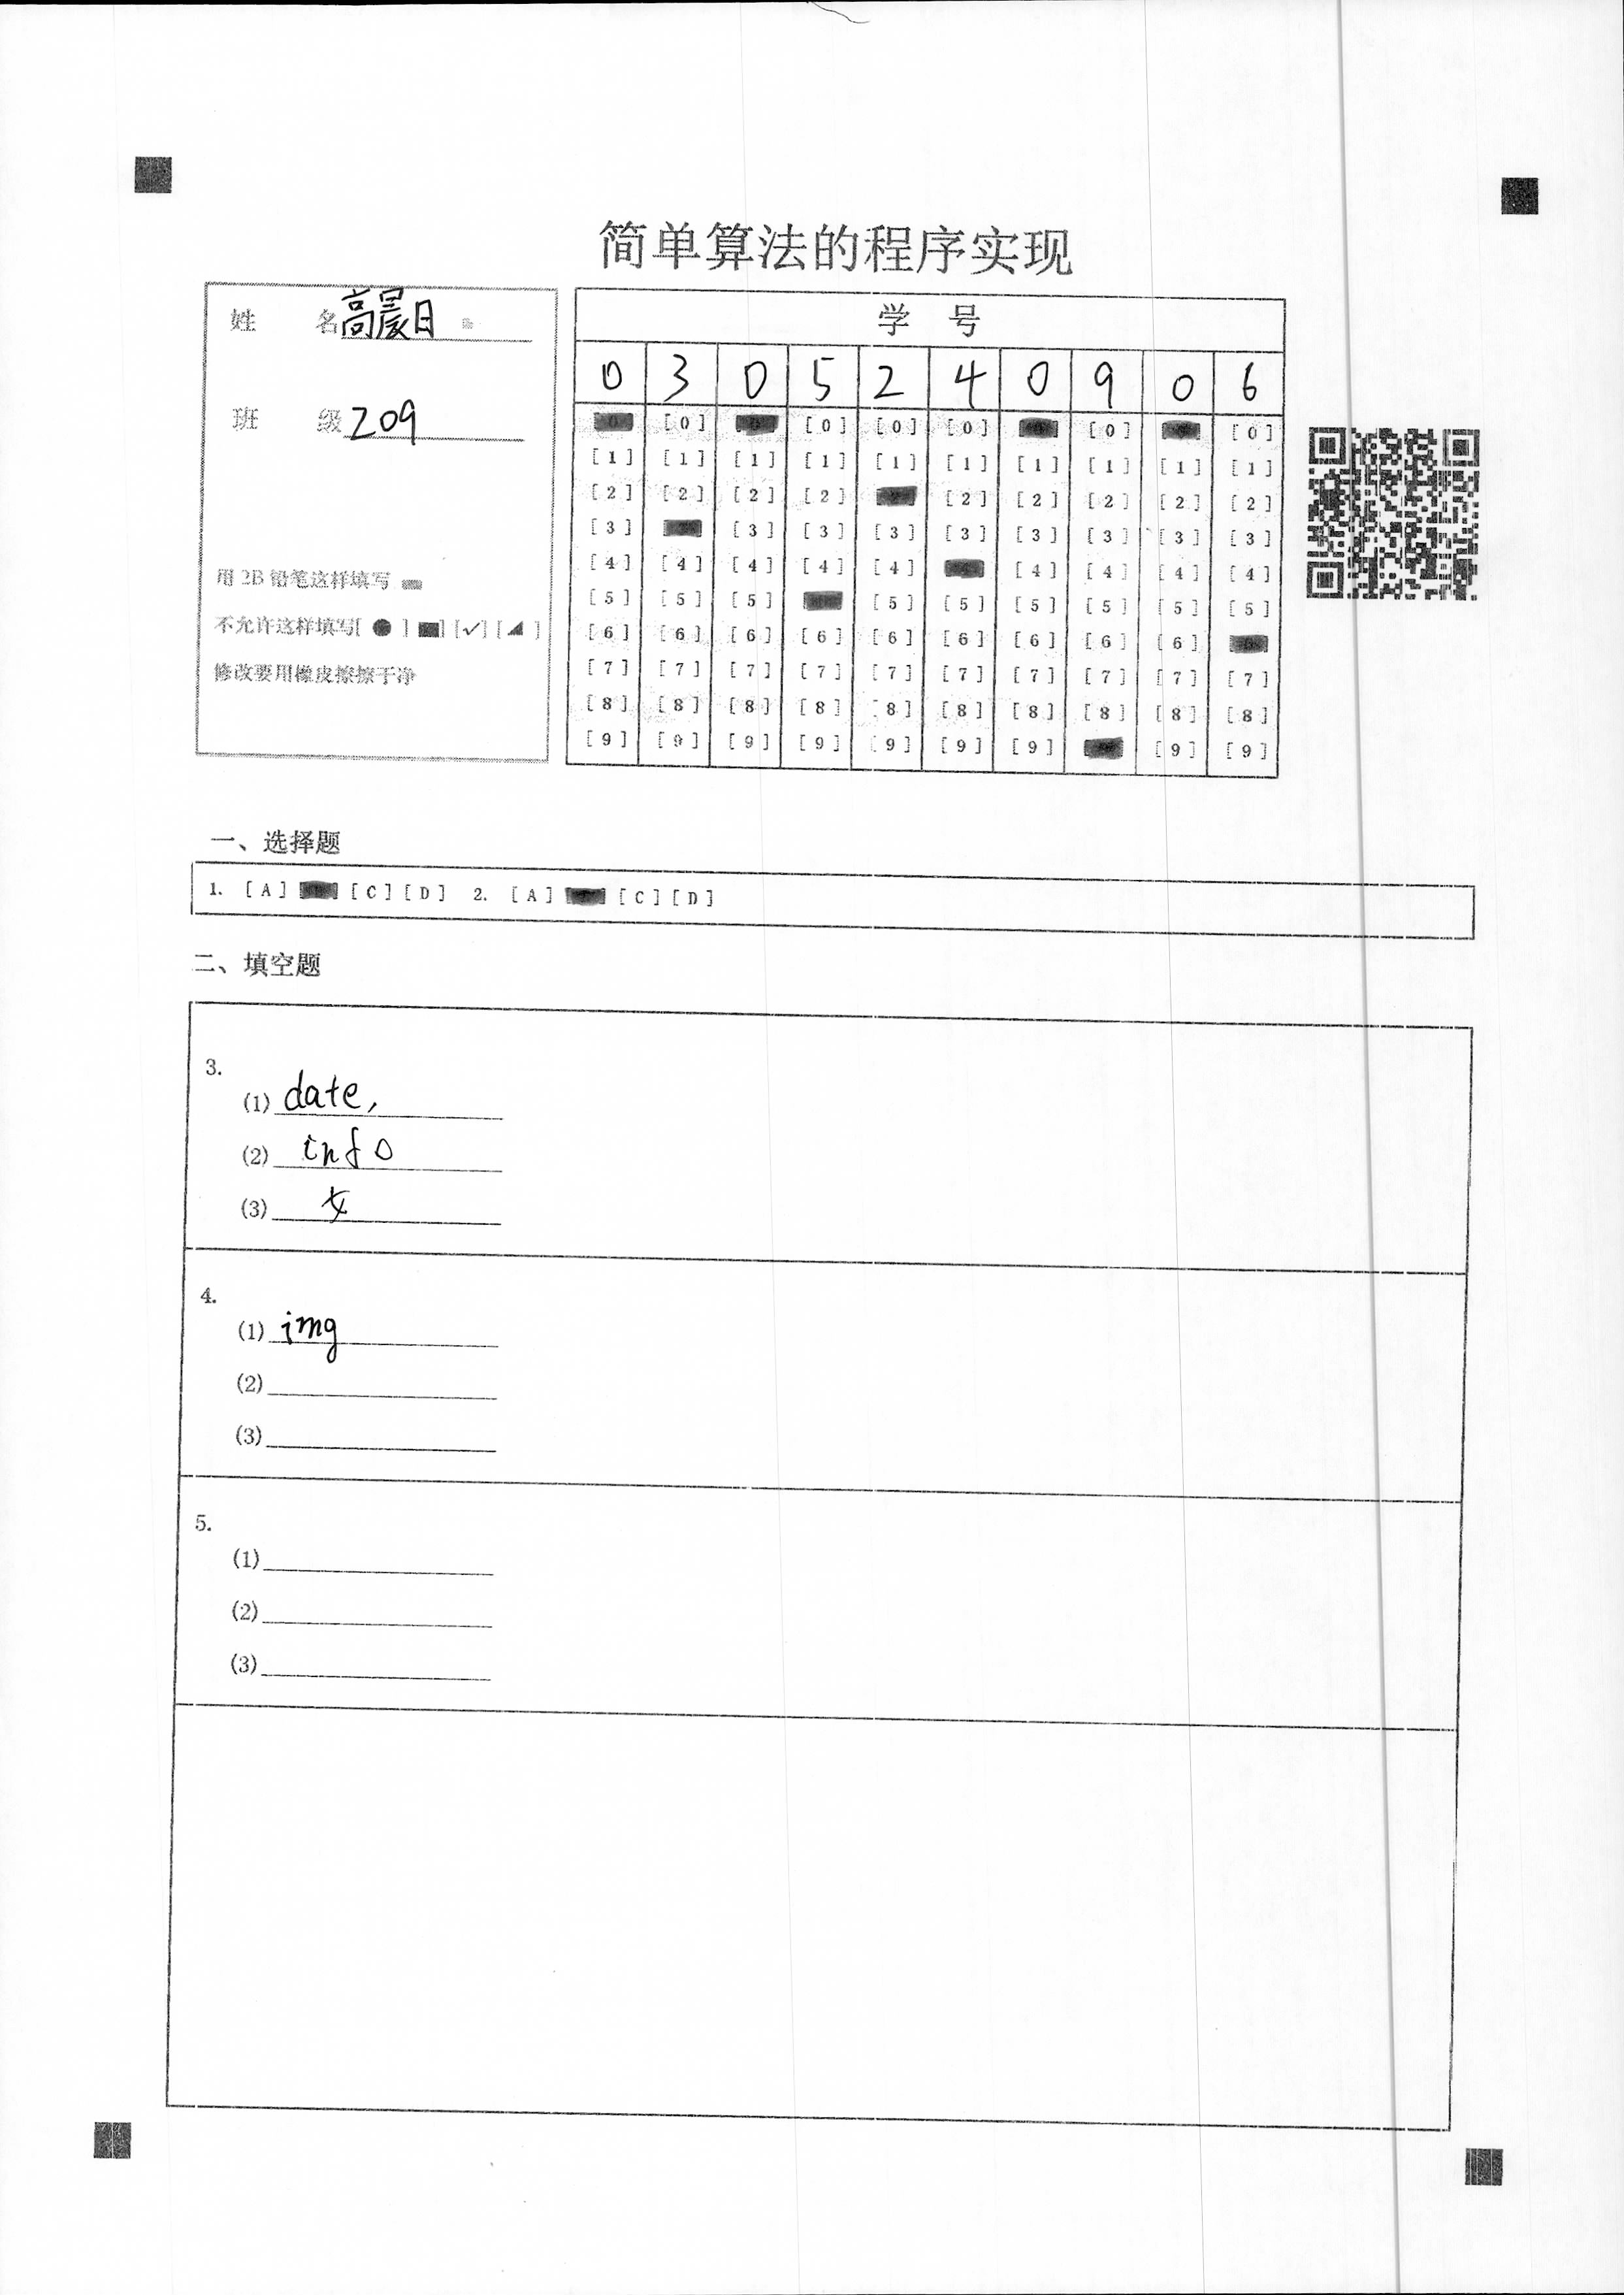 简单算法的程序实现
姓 名 高晨日
班 级 209
用 2B 铅笔这样填写
不允许这样填写[ ● ] [■] [✓] [◢ ]
修改要用橡皮擦擦干净
学 号
0 3 0 5 2 4 0 9 0 6
[0] [0] [0] [0] [0] [0]
[1] [1] [1] [1] [1] [1] [1] [1] [1] [1]
[2] [2] [2] [2] [2] [2] [2] [2] [2]
[3] [3] [3] [3] [3] [3] [3] [3] [3]
[4] [4] [4] [4] [4] [4] [4] [4] [4]
[5] [5] [5] [5] [5] [5] [5] [5] [5]
[6] [6] [6] [6] [6] [6] [6] [6] [6]
[7] [7] [7] [7] [7] [7] [7] [7] [7] [7]
[8] [8] [8] [8] [8] [8] [8] [8] [8] [8]
[9] [9] [9] [9] [9] [9] [9] [9] [9]
一、选择题
1. [A] [C] [D] 2. [A] [C] [D]
二、填空题
3.
(1) date,
(2) info
(3)
4.
(1) img
(2)
(3)
5.
(1)
(2)
(3)